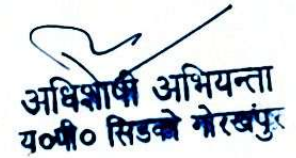 अधिशाषी अभियन्ता
य०पी० सिडको गोरखपुर